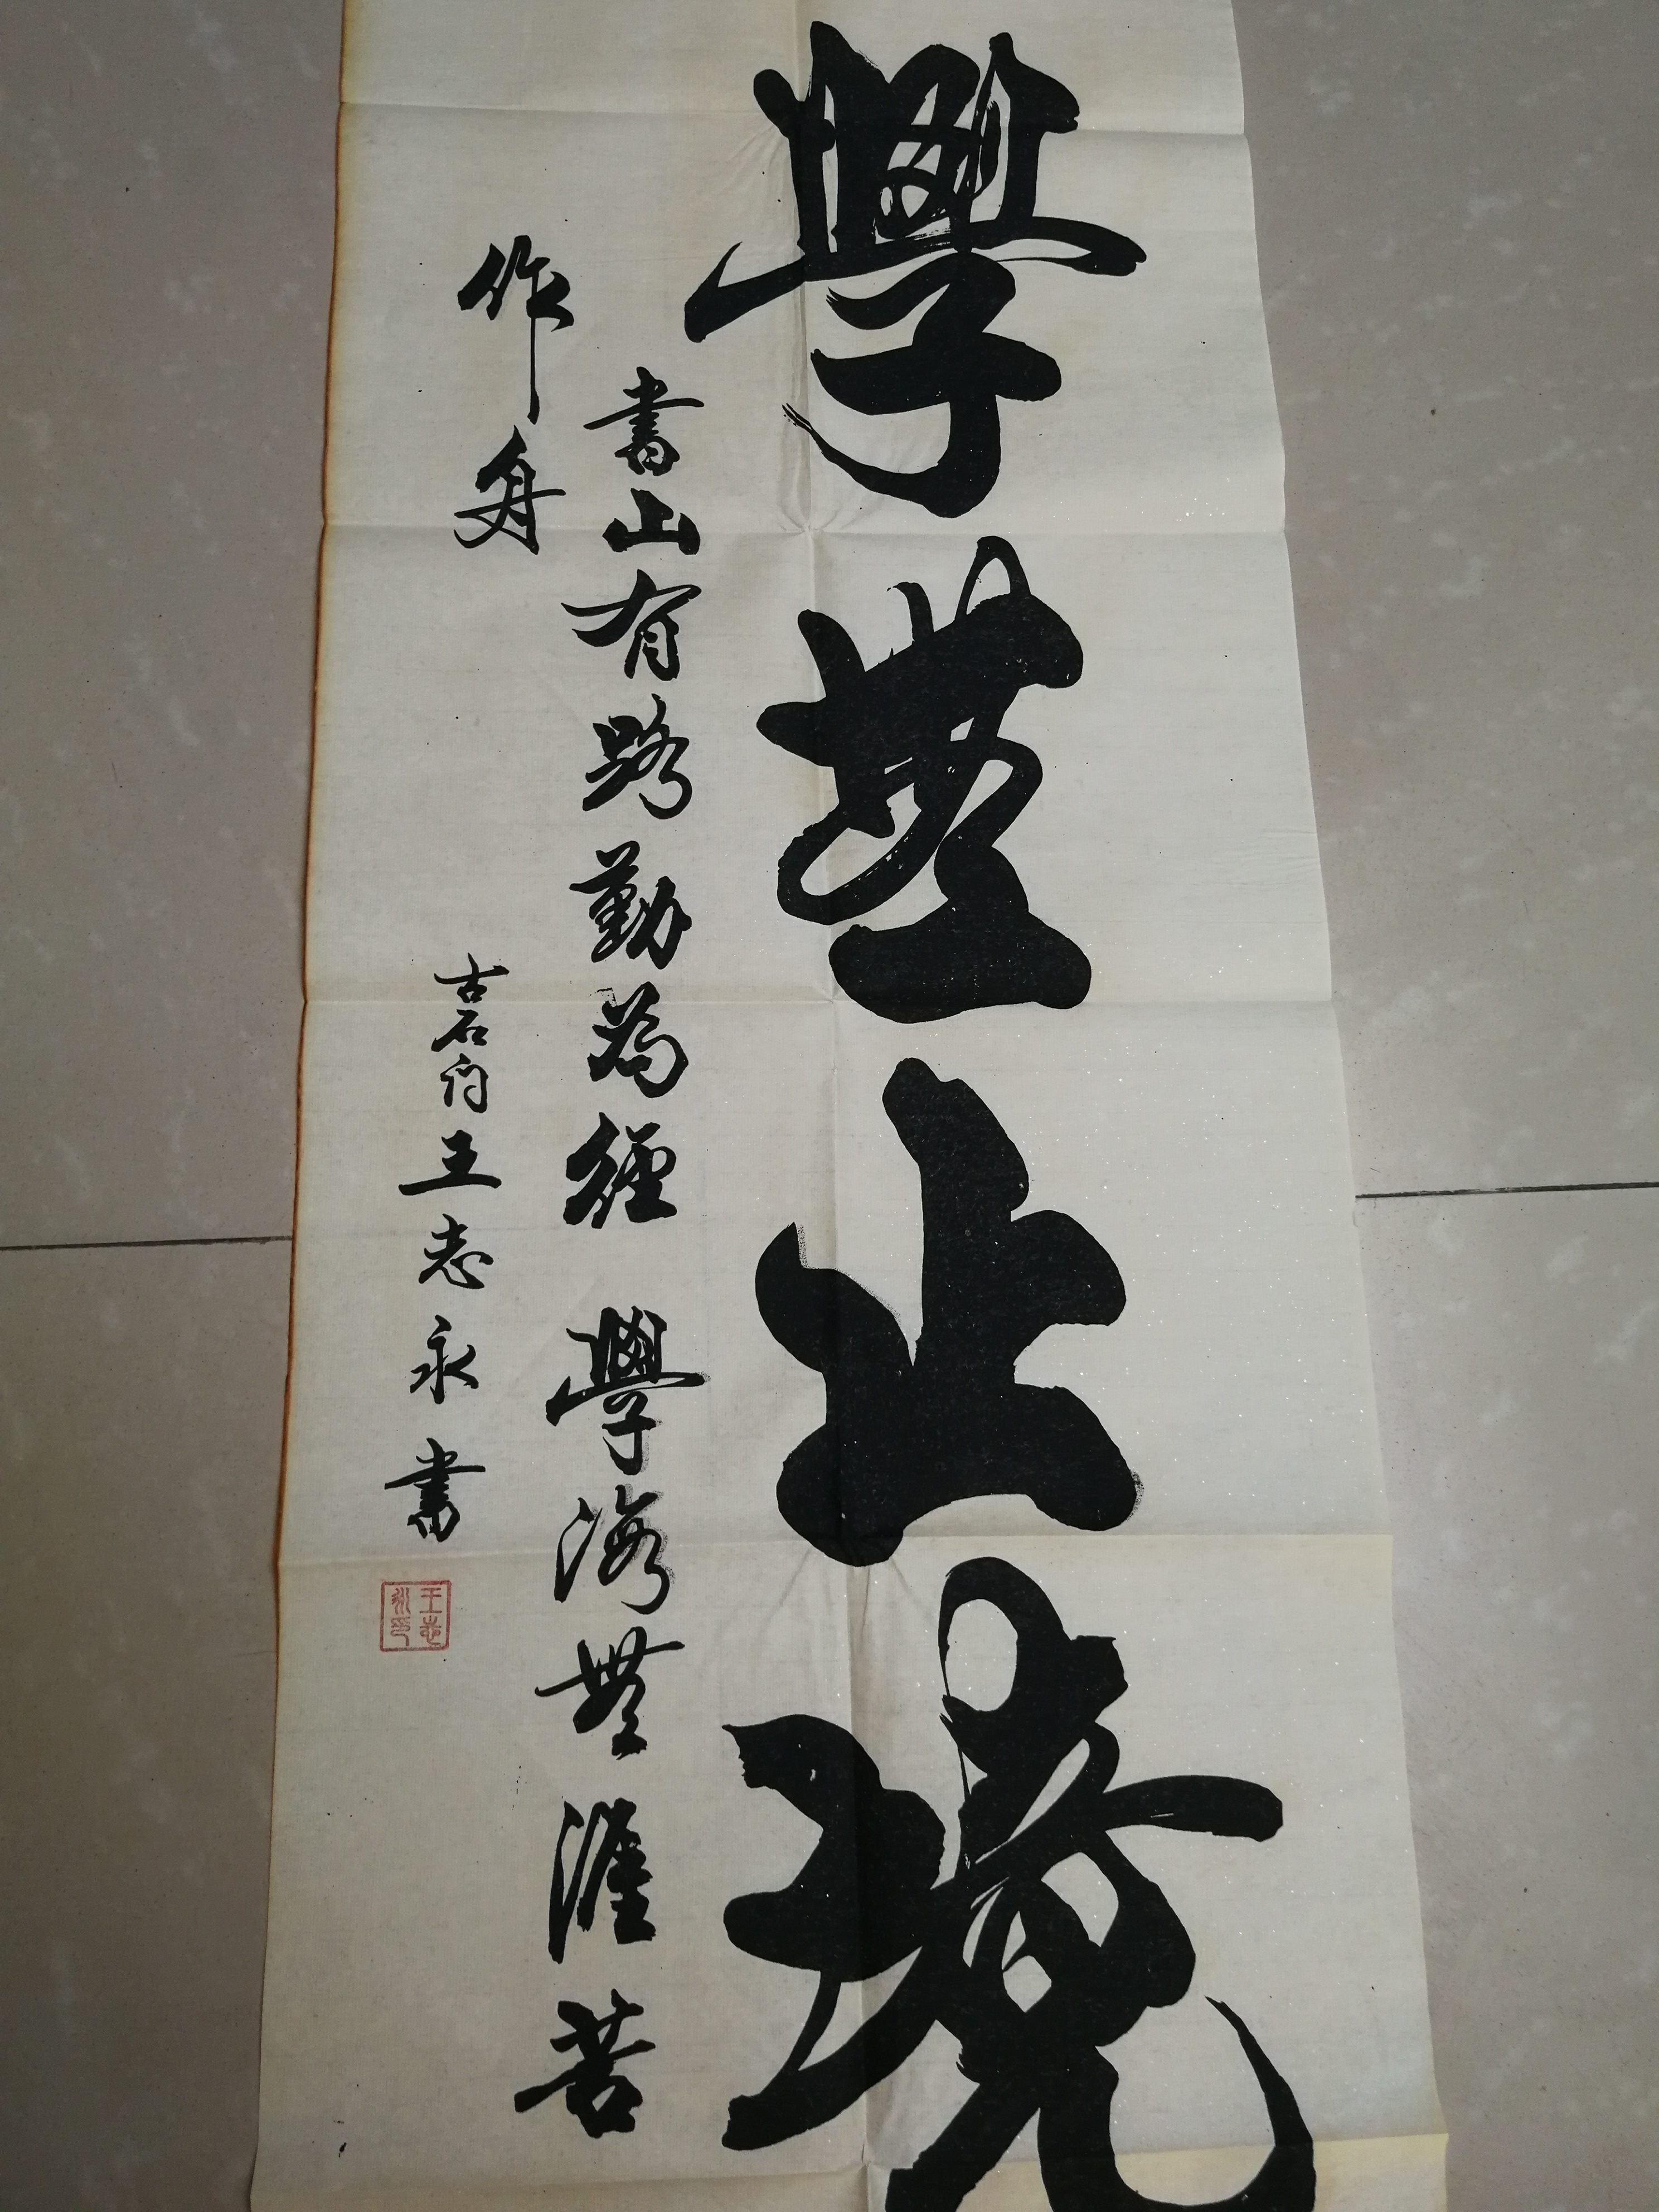 學無止境
書山有路勤為徑 學海無涯苦
作舟
古石州王志永書
王志永印